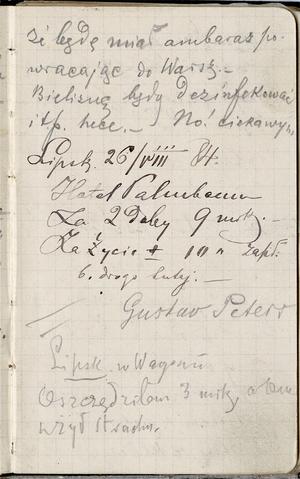 że będę miał ambaras po-
wracając do Warsz.–
Bieliznę będą dezinfekować
itp. hece.– No! ciekawym
Lipsk. 26/VIII 84.
Hotel Palmbaum
Za 2 Doby 9 mrk.–
Za życie 10 " zapł.
6. drogo
Gustav Peters
Lipsk. w Wagonie
Oszczędziłem 3 mrk,
wstyd